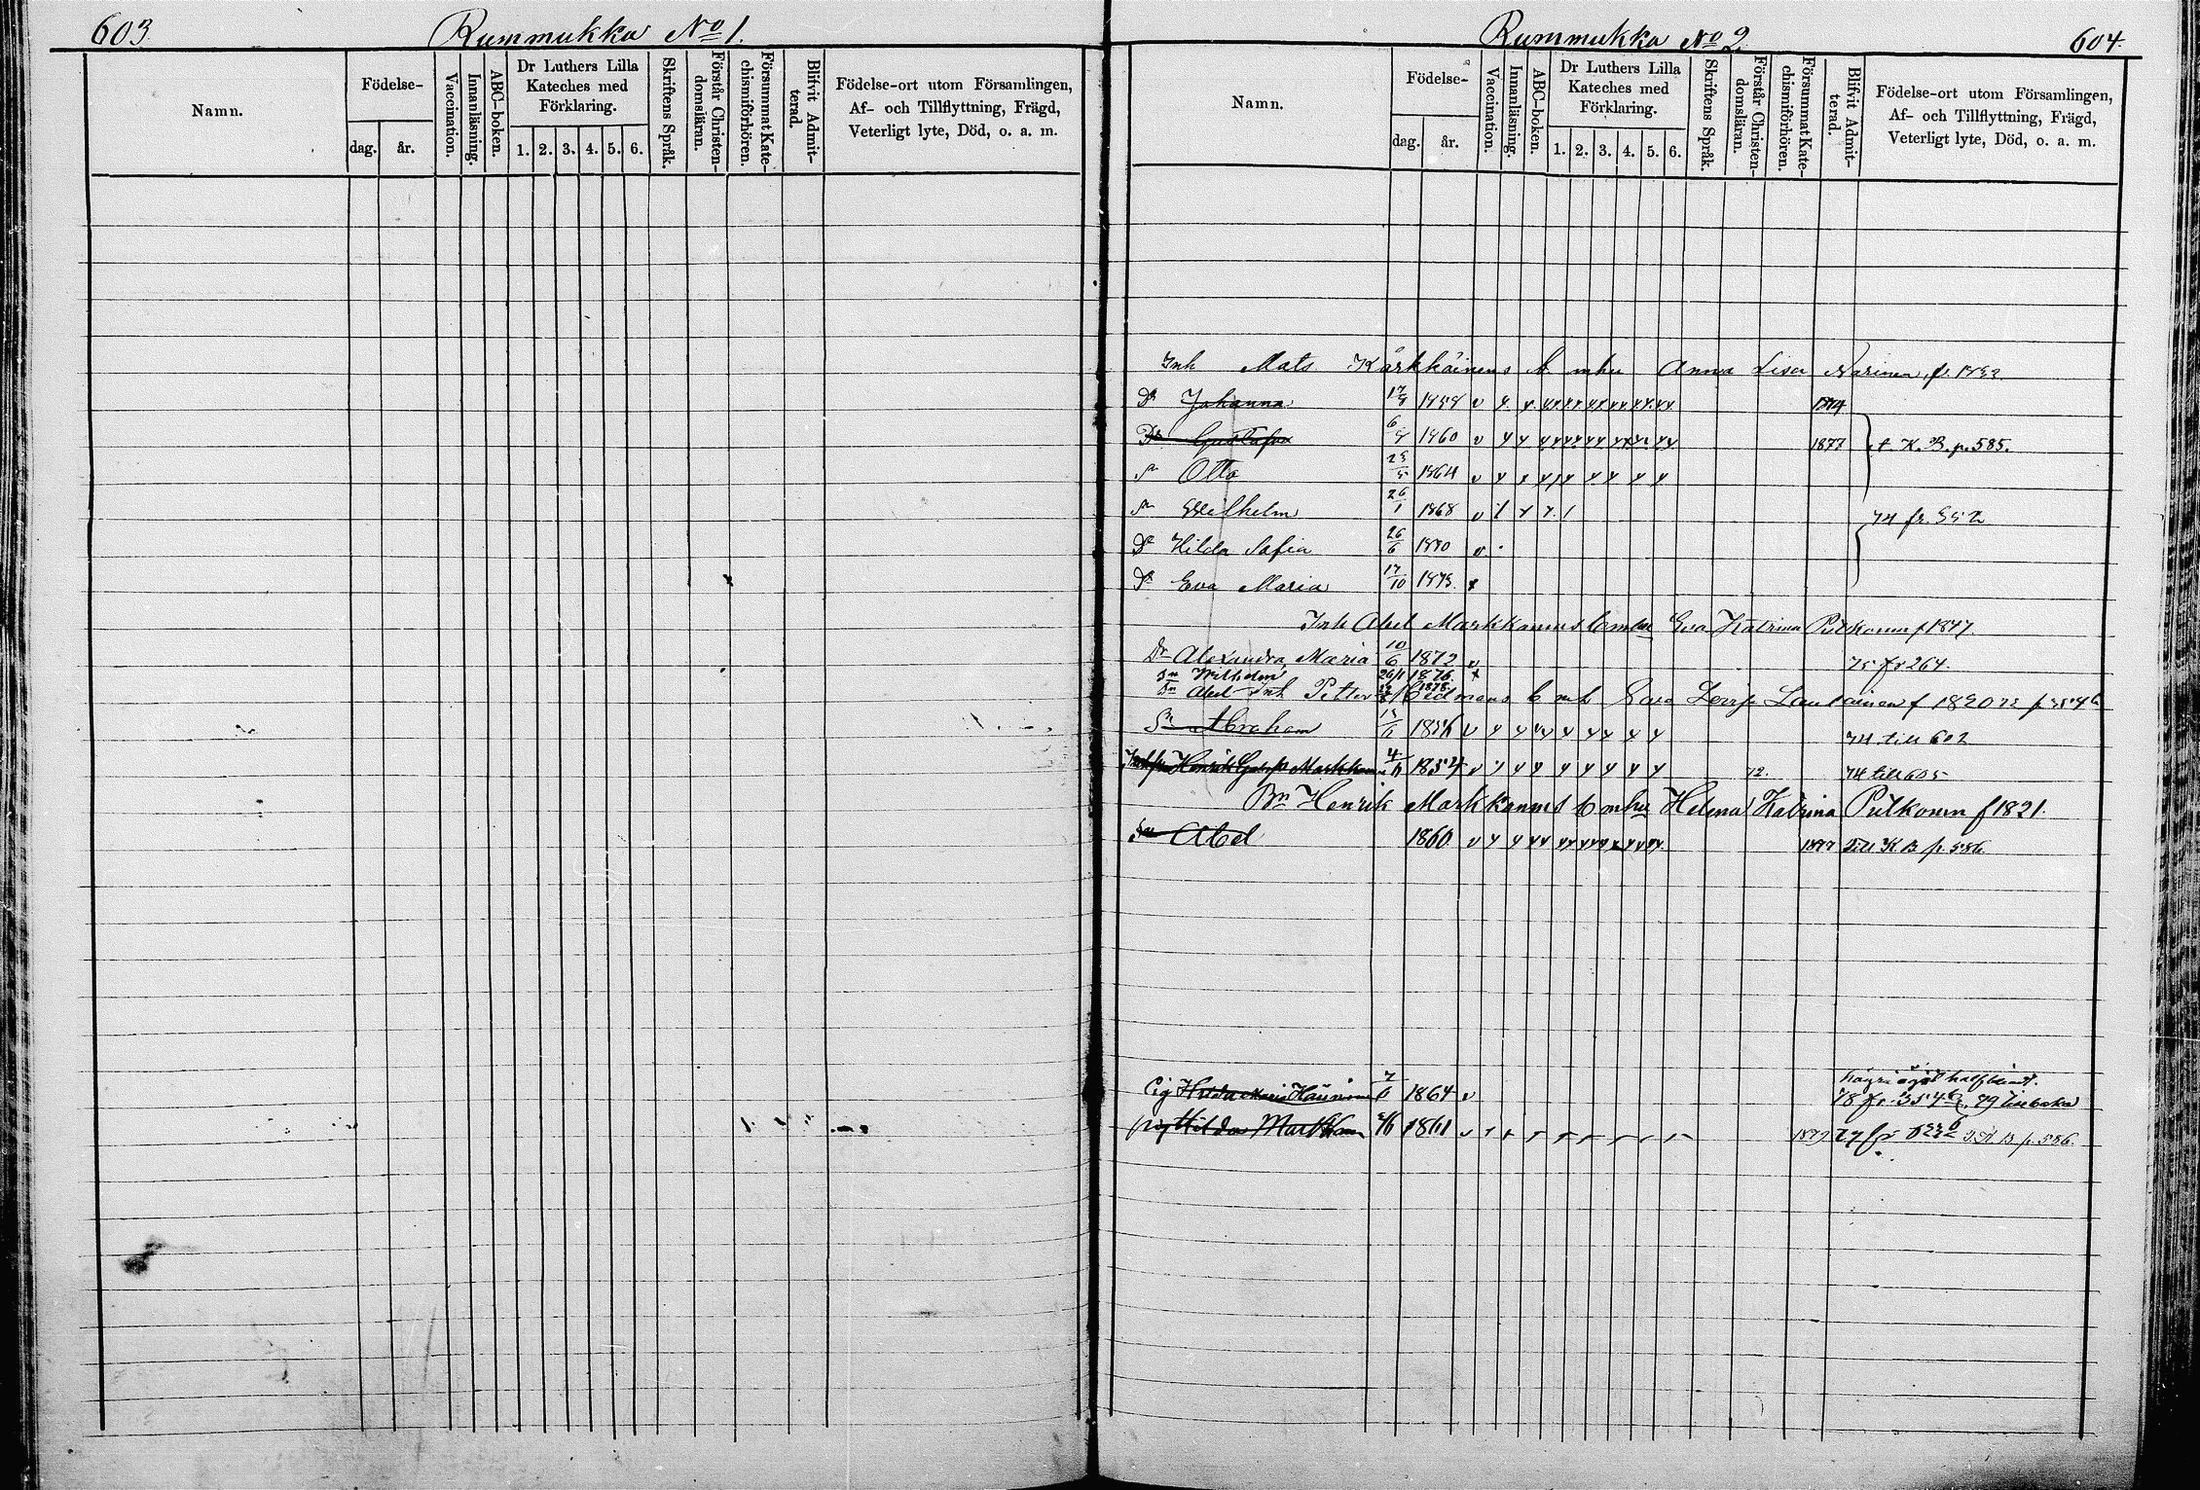 603 Rummukka No 1.
Namn.
Födelse-
dag. år.
Vaccination.
Innanläsning.
ABC-boken.
Dr Luthers Lilla Kateches med Förklaring.
1. 2. 3. 4. 5. 6.
Skriftens Språk.
Förstår Christen-domsläran.
Försummat Kate-chismiförhören.
Blifvit Admit-terad.
Födelse-ort utom Församlingen,
Af- och Tillflyttning, Frägd,
Veterligt lyte, Död, o. a. m.
Rummukka No 2. 604.
Namn.
Födelse-
dag. år.
Vaccination.
Innanläsning.
ABC-boken.
Dr Luthers Lilla Kateches med Förklaring.
1. 2. 3. 4. 5. 6.
Skriftens Språk.
Förstår Christen-domsläran.
Försummat Kate-chismiförhören.
Blifvit Admit-terad.
Födelse-ort utom Församlingen,
Af- och Tillflyttning, Frägd,
Veterligt lyte, Död, o. a. m.
Inh Mats Kärkkäinens b. mhu Anna Lisa
Dr Johanna v 1874
Dr Gustafva 1860 v 1877 t. K. B. p. 585.
Sn Otto 1864 v
Sn Wilhelm 26/1 1868 v 74 fr. 552
Dr Hilda Sofia 26/6 1870 v
Dr Eva Maria 17/10 1873.
Inh Abel Markkanens b mhu Eva Katrina Pitkonen f 1847.
Dr Alexandra Maria 10/6 1872 v 75 fr 264.
Sn Wilhelm 26/1 1876
Sn Abel 1878
Inh Petter b mh Sara Lovisa f 1820
Sn Abraham 1856 v 74 till 602
Henrik Markkanen 1854 v 72. 74 till 605
Bn Henrik Markkanens b mhu Helena Katrina Pitkonen f 1821.
Sn Abel 1860 v 1877 till K B p 586
Pig Hilda Maria 1864 v högra ögat halfblindt.
78 fr. 79 tillbaka
pig Hilda Markkan 1861 v 1879 77 fr K B p. 586.